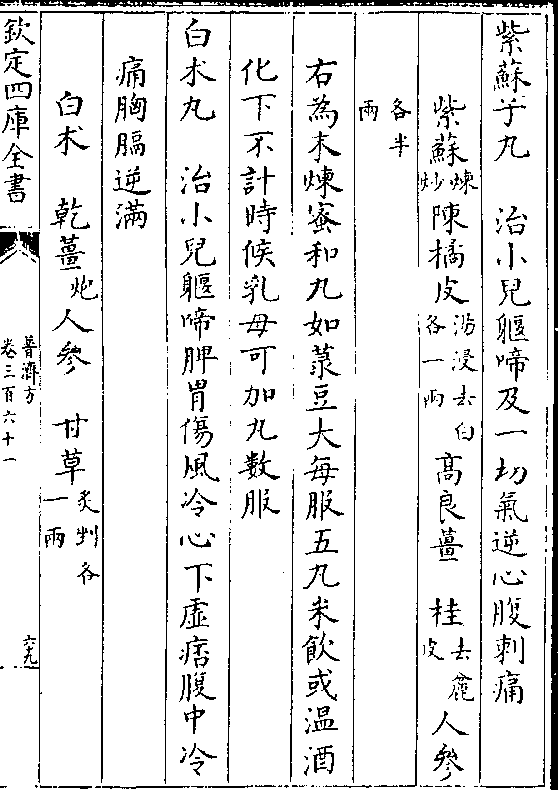 紫蘇子丸　治小兒軀啼及一切氣逆心腹刺痛
紫蘇煉炒陳橘皮湯浸去白各一兩高良薑　桂去麄皮人參
各半兩
右為末煉蜜和丸如菉豆大每服五丸米飲或温酒
化下不計時候乳母可加丸數服
白术丸　治小兒軀啼脾胃傷風冷心下虛痞腹中冷
痛胸膈逆滿
白术　乾薑炮人參　甘草炙剉各一兩
欽定四庫全書
普濟方
卷三百六十一
六九